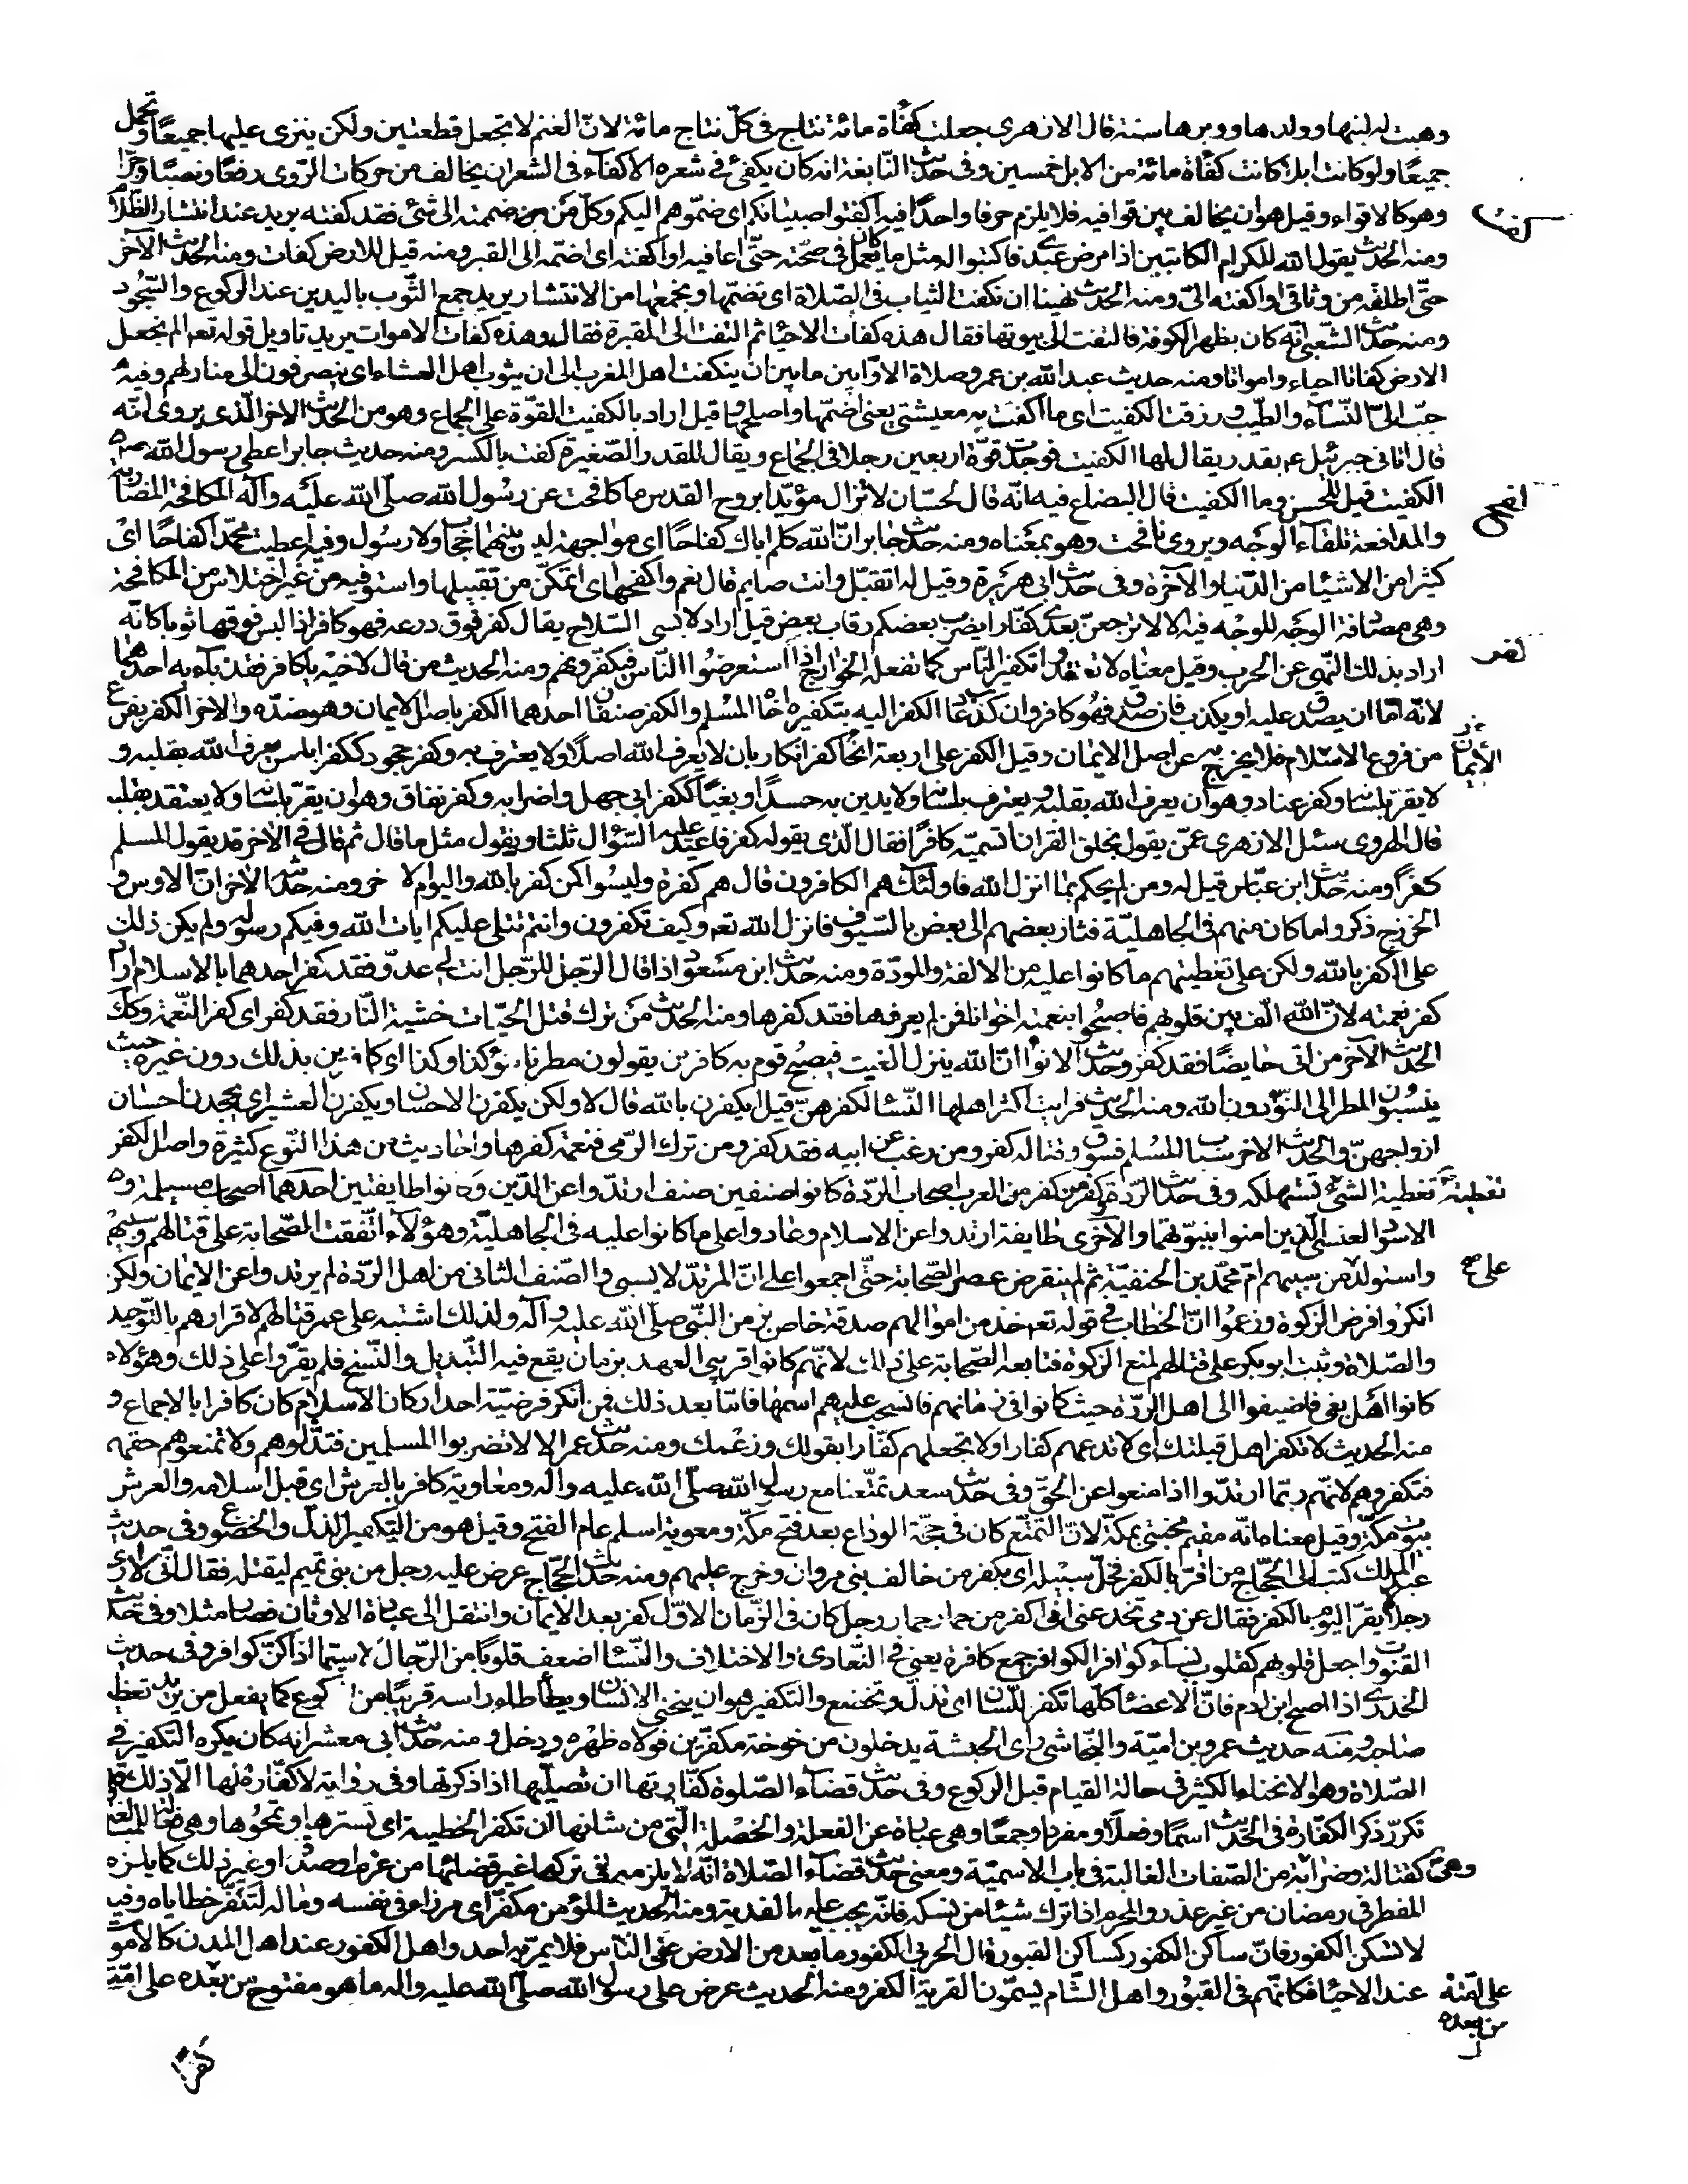 وهبت له لبنها وولدها ووبرها سنة قال الازهري جعلت كفأة مائة نتاج في كل نتاج مائة لانّ الغنم لا تجعل قطعتين ولكن ينزى عليها جميعًا وتحمل
جميعًا ولو كانت ابلا كانت كفأة مائة من الابل خمسين وفي حديث النّابغة انه كان يكفئ في شعره الاكفآء في الشعر ان يخالف من حركات الرّوى رفعًا ونصبًا وجرّا
وهو كالاقواء وقيل هو ان يخالف بين قوافيه فلا يلزم حرفا واحدًا فيه اكفتوا صبيانكم اى ضمّوهم اليكم وكلّ من ضممته الى شئ فقد كفته يريد عند انتشار الظّلام
كفت
ومنه الحديث يقول الله للكرام الكاتبين اذا مرض عبدى فاكتبوا له مثل ما كان يعمل فى صحّته حتّى اعافيه او اكفته اى اضمّه الى القبر ومنه قيل للارض كفات ومنه الحديث الآخر
حتّى اطلقه من وثاقى او اكفته الىّ ومنه الحديث نهينا ان نكفت الثياب فى الصّلاة اى نضمّها ونجمعها من الانتشار يريد جمع الثّوب باليدين عند الركوع والسّجود
ومنه حديث الشّعبى انّه كان بظهر الكوفة فالتفت الى بيوتها فقال هذه كفات الاحياء ثم التفت الى المقبرة فقال وهذه كفات الاموات يريد تاويل قوله تعه الم نجعل
الارض كفاتا احياء وامواتا ومنه حديث عبد الله بن عمر وصلاة الاوّابين ما بين ان ينكفت اهل المغرب الى ان يثوب اهل العشاء اى ينصرفون الى منازلهم وفيه
حبّب الىّ النّسآء والطّيب ورزقت الكفيت اى ما اكفت به معيشتى يعنى اضمّها واصلحها وقيل اراد بالكفيت القوّة على الجماع وهو من الحديث الاخر الّذى يروى انّه
قال اتانى جبرئيل عم بقدر يقال لها الكفيت فوجدت قوّة اربعين رجلا فى الجماع ويقال للقدر الصّغيرة كفت بالكسر ومنه حديث جابر اعطى رسول الله ص
الكفيت قيل للحسن وما الكفيت قال البضاع فيه انّه قال لحسّان لا تزال مؤيّدا بروح القدس ما كافحت عن رسول الله صلّى الله عليه وآله المكافحة المضاربة
والمدافعة تلقآء الوجه ويروى نافحت وهو بمعناه ومنه حديث جابر انّ الله كلم اباك كفاحًا اى مواجهة ليس بينهما حجاب ولا رسول وفيه اعطيت محمّدا كفاحًا اى
كثيرا من الاشياء من الدّنيا والآخرة وفى حديث ابى هريرة وقيل له اتقبّل وانت صايم قال نعم واكفحها اى اتمكّن من تقبيلها واستوفيه من غير اختلاس من المكافحة
وهى مصادفة الوجه للوجه فيه الا لا ترجعنّ بعدى كفّارا يضرب بعضكم رقاب بعض قيل اراد لابسى السّلاح يقال كفر فوق درعه فهو كافر اذا لبس فوقها ثوبا كانّه
كفر
اراد بذلك النّهى عن الحرب وقيل معناه لا تعتقدوا تكفير النّاس كما تفعله الخوارج اذا استعرضوا النّاس فيكفّرونهم ومنه الحديث من قال لاخيه يا كافر فقد بآء به احدهما
لانّه امّا ان يصدق عليه او يكذب فان صدق فهو كافر وان كذب عاد الكفر اليه بتكفيره اخاه المسلم والكفر صنفان احدهما الكفر باصل الايمان وهو ضدّه والاخر الكفر بفرع
من فروع الاسلام فلا يخرج به عن اصل الايمان وقيل الكفر على اربعة انحاء كفر انكار بان لا يعرف الله اصلا ولا يعترف به وكفر جحود ككفر ابليس يعرف الله بقلبه و
لا يقرّ بلسانه وكفر عناد وهو ان يعرف الله بقلبه ويعترف بلسانه ولا يدين به حسدًا وبغيًا ككفر ابى جهل واضرابه وكفر نفاق وهو ان يقرّ بلسانه ولا يعتقد بقلبه
قال الهروى سئل الازهرى عمّن يقول بخلق القران اتسمّيه كافرًا فقال الّذى يقوله كفر فاعيد عليه السّؤال ثلثا ويقول مثل ما قال ثم قال فى الآخر قد يقول المسلم
كفرًا ومنه حديث ابن عبّاس قيل له ومن لم يحكم بما انزل الله فاولئك هم الكافرون قال هم كفرة وليسوا كمن كفر بالله واليوم الاخر ومنه حديثه الآخر انّ الاوس و
الخزرج ذكروا ما كان منهم فى الجاهليّة فثار بعضهم الى بعض بالسّيوف فانزل الله تعه وكيف تكفرون وانتم تتلى عليكم ايات الله وفيكم رسوله ولم يكن ذلك
على الكفر بالله ولكن على تغطيتهم ما كانوا عليه من الالفة والمودّة ومنه حديث ابن مسعود اذا قال الرّجل للرّجل انت لى عدوّ فقد كفر احدهما بالاسلام اراد
كفر نعمته لانّ الله الّف بين قلوبهم فاصبحوا بنعمته اخوانا فمن لم يعرفها فقد كفرها ومنه الحديث من ترك قتل الحيّات خشية النّار فقد كفر اى كفر النّعمة وكذلك
الحديث الآخر من اتى حايضًا فقد كفر وحديث الانواء انّ الله ينزل الغيث فيصبح قوم به كافرين يقولون مطرنا بنؤ كذا وكذا اى كافرين بذلك دون غيره حيث
ينسبون المطر الى النّؤ دون الله ومنه الحديث فرايت اكثر اهلها النّساء لكفرهنّ قيل ايكفرن بالله قال لا ولكن يكفرن الاحسان ويكفرن العشير اى يجحدن احسان
ازواجهنّ والحديث الاخر سباب المسلم فسوق وقتاله كفر ومن رغب عن ابيه فقد كفر ومن ترك الرّمى فنعمة كفرها واحاديث من هذا النّوع كثيرة واصل الكفر
تغطية الشئ تغطية تستهلكه وفى حديث الرّدّة وكفر من كفر من العرب اصحاب الردّة كانوا صنفين صنف ارتدّوا عن الدّين وكانوا طايفتين احدهما اصحاب مسيلمة و
الاسود العنسى الّذين امنوا بنبوّتهما والآخرى طايفة ارتدوا عن الاسلام وعادوا على ما كانوا عليه فى الجاهليّة وهؤلآء اتّفقت الصّحابة على قتالهم وسبيهم
واستولد على ع من سبيهم امّ محمّد بن الحنفيّة ثم لم ينقرض عصر الصّحابة حتّى اجمعوا على انّ المرتدّ لا يسبى والصّنف الثانى من اهل الردّة لم يرتدوا عن الايمان ولكن
انكروا فرض الزكوة وزعموا انّ الخطاب فى قوله تعه خذ من اموالهم صدقة خاص بزمن النّبى صلّى الله عليه وآله ولذلك اشتبه على عمر قتالهم لاقرارهم بالتّوحيد
والصّلاة وثبت ابو بكر على قتالهم لمنع الزكوة فتابعه الصّحابة على ذلك لانّهم كانوا قريبى العهد بزمان يقع فيه التّبديل والنّسخ فلم يقرّوا على ذلك وهؤلاء
كانوا اهل بغى فاضيفوا الى اهل الردّة حيث كانوا فى زمانهم فانسحب عليهم اسمها فامّا بعد ذلك فمن انكر فرضيّة احد اركان الاسلام كان كافرا بالاجماع و
منه الحديث لا تكفر اهل قبلتك اى لا تدعهم كفارا ولا تجعلهم كفّارا بقولك وزعمك ومنه حديث عمر الا لا تضربوا المسلمين فتذلّوهم ولا تمنعوهم حقهم
فتكفروهم لانّهم ربّما ارتدّوا اذا منعوا عن الحقّ وفى حديث سعد تمتّعنا مع رسول الله صلّى الله عليه واله ومعاوية كافر بالعرش اى قبل اسلامه والعرش
بيوت مكّة وقيل معناه انّه مقيم مختبئ بمكّة لانّ التّمتّع كان فى حجّة الوداع بعد فتح مكّة ومعوية اسلم عام الفتح وقيل هو من التّكفير الذلّ والخضوع وفى حديث
عبد الملك كتب الى الحجّاج من اقرّ بالكفر فخلّ سبيله اى بكفر من خالف بنى مروان وخرج عليهم ومنه حديث الحجّاج عرض عليه رجل من بنى تميم ليقتله فقال انّى لارى
رجلا لا يقرّ اليوم بالكفر فقال عن دمى تخدعنى انى اكفر من حمار حمار رجل كان فى الزّمان الاوّل كفر بعد الايمان وانتقل الى عبادة الاوثان فصار مثلا وفى حديث
القنوت واجعل قلوبهم كقلوب نسآء كوافر الكوافر جمع كافرة يعنى فى التّعادى والاختلاف والنّساء اضعف قلوبًا من الرّجال لا سيّما اذا كنّ كوافر وفى حديث
الخدرى اذا اصبح ابن ادم فانّ الاعضاء كلّها تكفر للّسان اى تذلّ وتخضع والتكفير هو ان ينحنى الانسان ويطأطأ راسه قريبًا من الركوع كما يفعل من يريد تعظيم
صاحبه ومنه حديث عمرو بن اميّة والنّجاشى راى الحبشة يدخلون من خوخة مكفّرين فولاه ظهره ودخل ومنه حديث ابى معشر انه كان يكره التكفير فى
الصّلاة وهو الانحناء الكثير فى حالة القيام قبل الركوع وفى حديث قضآء الصّلوة كفّارتها ان تصلّيها اذا ذكرتها وفى رواية لا كفّارة لها الّا ذلك قد
تكرّر ذكر الكفّارة فى الحديث اسمًا وفعلًا ومفردا وجمعًا وهى عبارة عن الفعلة والخصلة الّتى من شانها ان تكفر الخطيئة اى تسترها وتمحوها وهى فعّالة للمبالغة
وهى كقتالة وضرابة من الصّفات الغالبة فى باب الاسميّة ومعنى حديث قضآء الصّلاة انّه لا يلزمه فى تركها غير قضائها من غرم او صدقة او غير ذلك كما يلزم
المفطر فى رمضان من غير عذر والمحرم اذا ترك شيئا من نسكه فانّه يجب عليه الفدية ومنه الحديث المؤمن مكفّر اى مرزاء فى نفسه وماله لتكفّر خطاياه وفيه
لا تسكن الكفور فانّ ساكن الكفور كساكن القبور قال الحربى الكفور ما بعد من الارض عن النّاس فلا يمرّ به احد واهل الكفور عند اهل المدن كالاموات
عند الاحياء فكانّهم فى القبور واهل الشّام يسمّون القرية الكفر ومنه الحديث عرض على رسول الله صلّى الله عليه واله ما هو مفتوح من بعده على امّته
على امّته
من بعده
كفرا